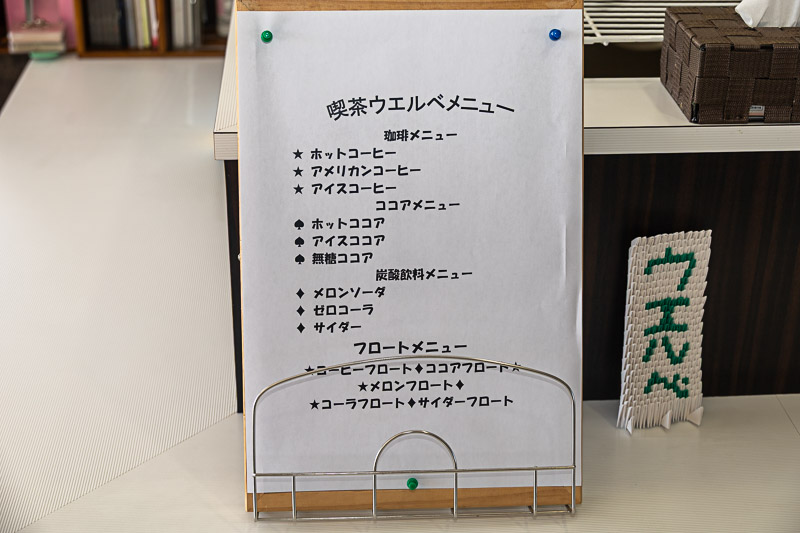 喫茶ウエルベメニュー
珈琲メニュー
★ ホットコーヒー
★ アメリカンコーヒー
★ アイスコーヒー
ココアメニュー
♠ ホットココア
♠ アイスココア
♠ 無糖ココア
炭酸飲料メニュー
♦ メロンソーダ
♦ ゼロコーラ
♦ サイダー
フロートメニュー
★コーヒーフロート♦ココアフロート★
★メロンフロート♦
★コーラフロート♦サイダーフロート
ウエルベ